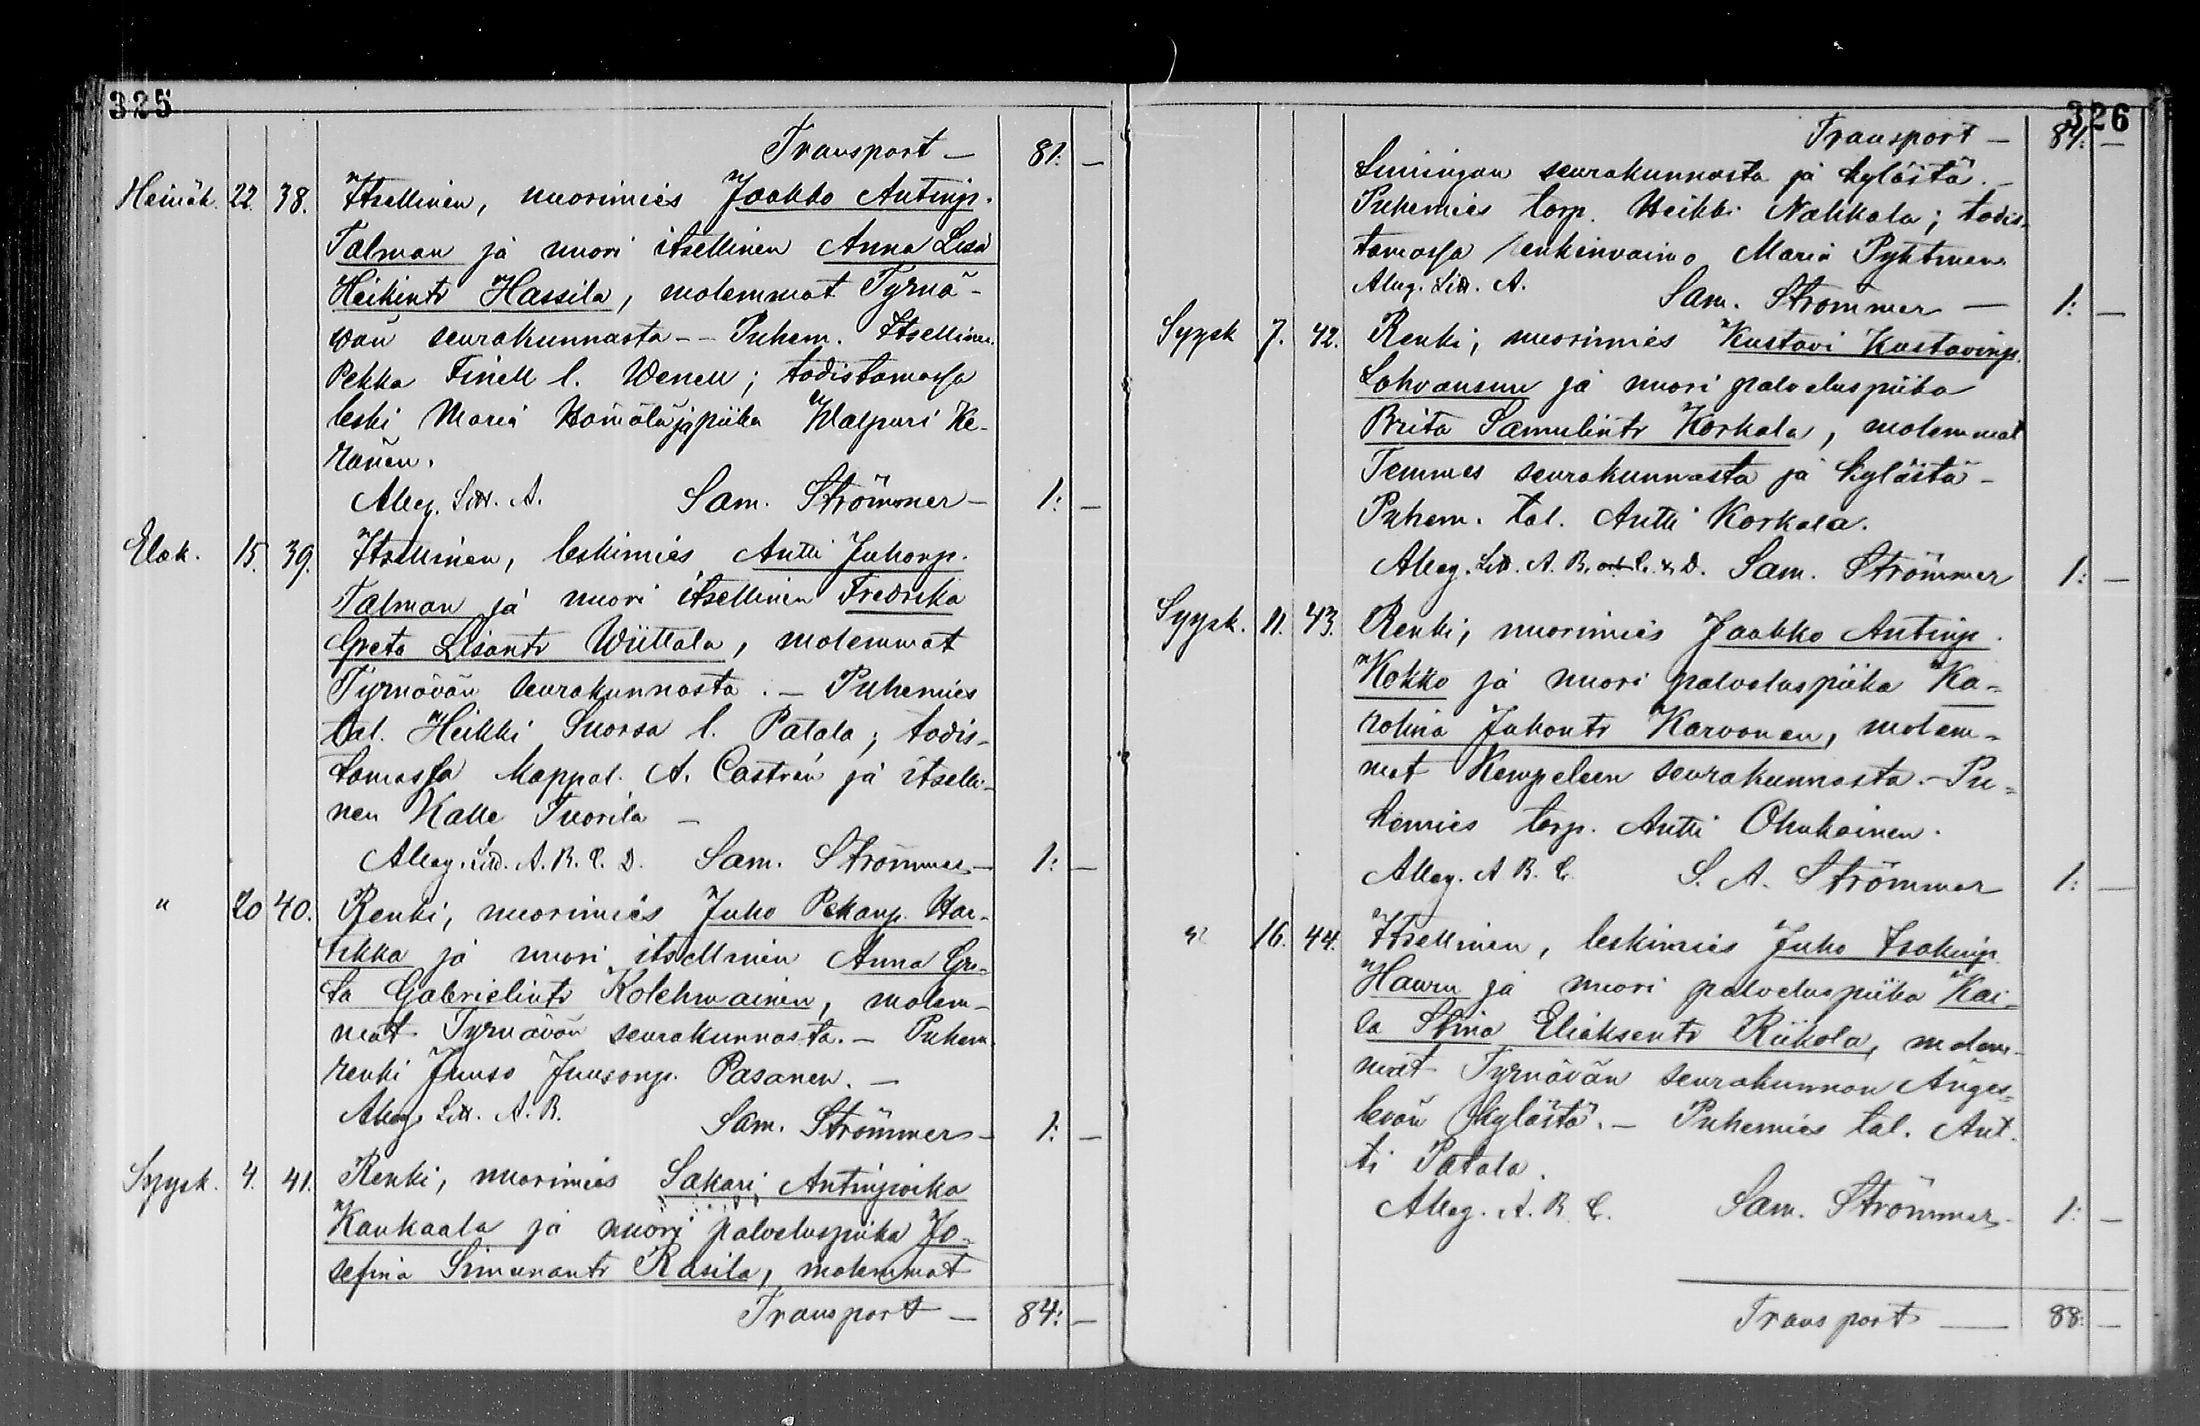 325
Transport — 81: —
Heinäk. 22. 38. Itsellinen, nuorimies Jaakko Antinp.
Talman ja nuori itsellinen Anna Lisa
Heikintr Hassila, molemmat Tyrnä-
wän seurakunnasta -- Puhem. Itsellinen
Pekka Finell l. Wenell; todistamassa
leski Maria Hämälä ja piika Walpuri Ke-
ränen.
Alleg. Litt. A. Sam. Strömmer — 1: —
Elok. 15. 39. Itsellinen, leskimies Antti Juhonp.
Talman ja nuori itsellinen Fredrika
Greta Liisantr Wiittala, molemmat
Tyrnävän seurakunnasta. — Puhemies
tal. Heikki Suorsa l. Patala; todis-
tamassa Kappal. A. Castrén ja itselli-
nen Kalle Tuorila —
Alleg. Litt. A. B. C. D. Sam. Strömmer — 1: —
" 20 40. Renki, nuorimies Juho Pekanp. Har-
tikka ja nuori itsellinen Anna Gre-
ta Gabrielintr Kolehmainen, molem-
mat Tyrnävän seurakunnasta. — Puhem.
renki Juuso Juusonp. Pasanen. —
Alleg. Litt. A. B. Sam. Strömmer — 1: —
Syysk. 4. 41. Renki, nuorimies Sakari Antinpoika
Kaukaala ja nuori palveluspiika Jo-
sefina Simunantr Rasila, molemmat
Transport — 84: —
326
Transport — 84: —
Limingan seurakunnasta ja kylästä. —
Puhemies torp. Heikki Nahkala; todis-
tamassa renkinvaimo Maria Pyhtinen
Alleg. Litt. A. Sam. Strömmer — 1: —
Syysk 7. 42. Renki, nuorimies Kustavi Kustavinp.
Lohvansuu ja nuori palveluspiika
Brita Samulintr Korkala, molemmat
Temmes seurakunnasta ja kylästä —
Puhem. tal. Antti Korkala.
Alleg. Litt. A. B. och C. & D. Sam. Strömmer 1: —
Syysk. 11. 43. Renki, nuorimies Jaakko Antinp.
Kokko ja nuori palveluspiika Ka-
rolina Juhontr Karvonen, molem-
mat Kempeleen seurakunnasta. — Pu-
hemies torp. Antti Ohukainen.
Alleg. A B. C. S. A. Strömmer 1: —
" 16. 44. Itsellinen, leskimies Juho Isakinp.
Hauru ja nuori palveluspiika Kai-
sa Stina Eliaksentr Riikola, molem-
mat Tyrnävän seurakunnan Änges-
levän kylästä. — Puhemies tal. Ant-
ti Patala.
Alleg. A. B. C. Sam. Strömmer 1: —
Transport — 88: —